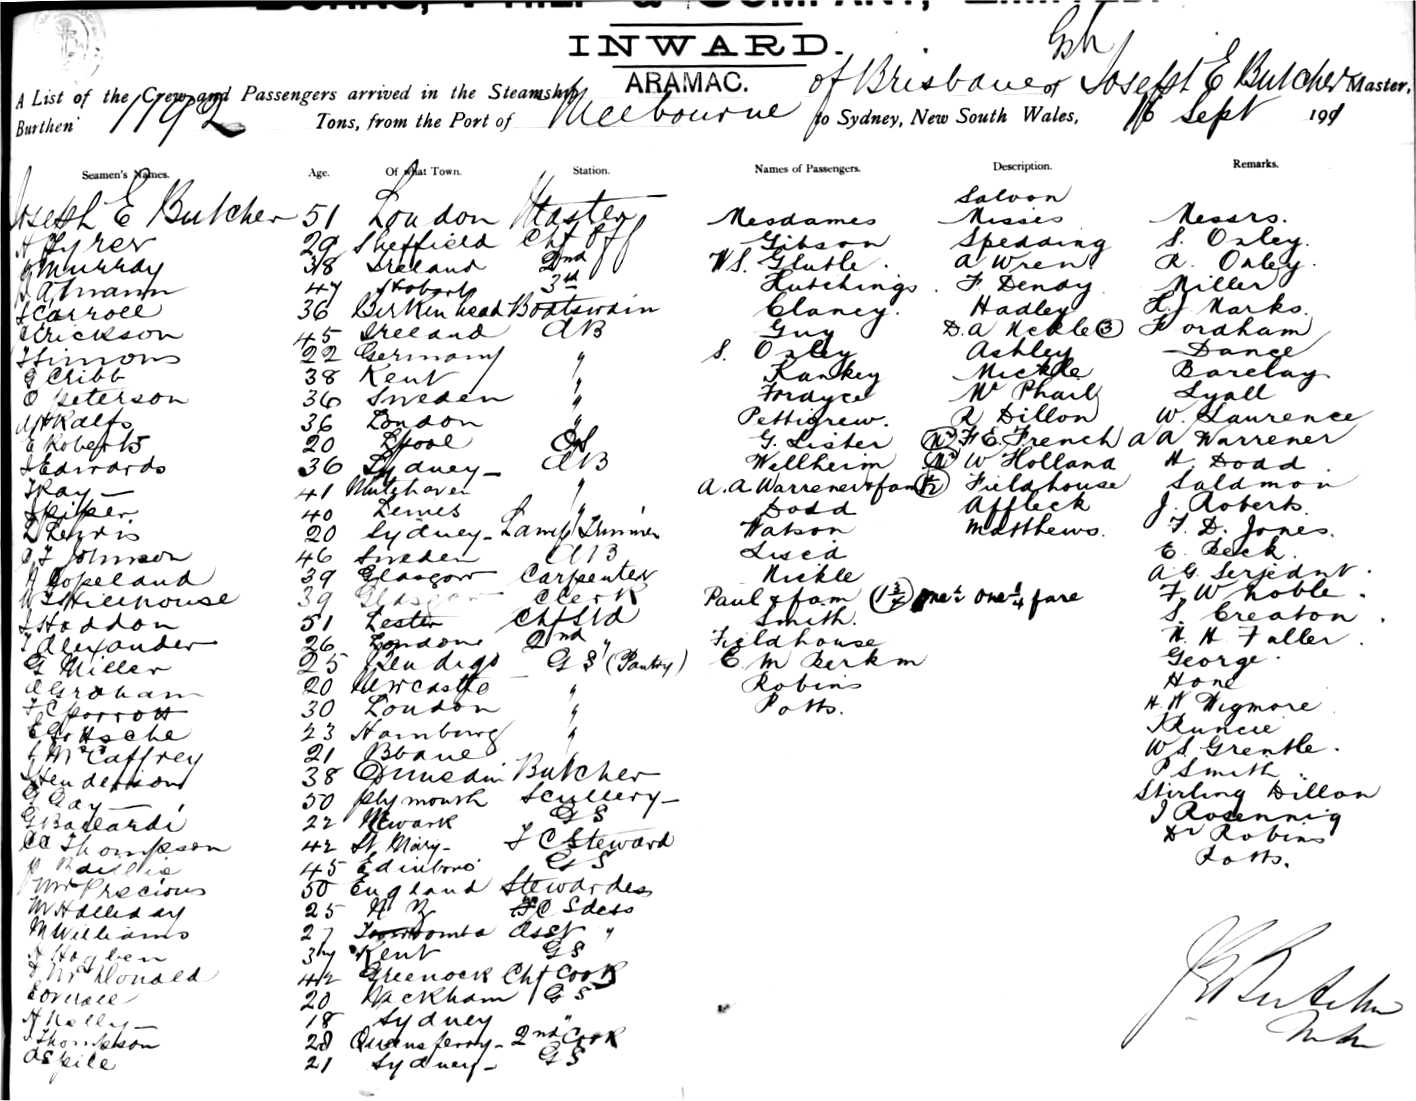 BURNS, PHILP & COMPANY, LIMITED.
INWARD.
A List of the Crew and Passengers arrived in the Steamship ARAMAC. of Brisbane of Joseph E Butcher Master,
Burthen 1192 Tons, from the Port of Melbourne to Sydney, New South Wales, 16 Sept 191
Seamen's Names. Age. Of what Town. Station. Names of Passengers. Description. Remarks.
Saloon
Joseph E Butcher 51 London Master Mesdames Misses Messrs.
29 Sheffield Chf Off Gibson Spedding S. Oxley.
Murray 38 Ireland 2nd W S. A Wren R. Oxley.
47 Hobart 3rd Hutchings. F Denay Miller
Carroll 36 Birkenhead Boatswain Clancy. Hadley H. J. Marks.
Erickson 45 Ireland AB Guy D. A Nickle 3 Fordham
Simons 22 Germany " S. Oxley Ashley Dance
G Cribb 38 Kent " Kankey Nickle Barclay
O Peterson 36 Sweden " Fordyce Mc Phail Lyall
Ralfs 36 London " Pettigrew. R Dillon W. Laurence
E Roberts 20 Lpool OS G. Lister F E French A A Warrener
J Edwards 36 Sydney AB Wellheim W Holland H Dodd
Kay 41 " A. A. Warrener & fam 1/2 Fieldhouse Saldmon
Piper 40 " Dodd Affleck J. Roberts.
Lewis 20 Sydney Lamp Trimmer Watson Matthews. F. D. Jones.
Johnson 46 Sweden AB E. Peck.
Copeland 39 Glasgow Carpenter Nickle A G. Serjeant.
39 Glasgow Clerk Paul & fam one 1/2 one 1/4 fare F W Noble.
Haddon 51 Lester Chf Std Smith. S. Creaton.
Alexander 26 London 2nd " Fieldhouse W. H Fuller.
G Miller 25 Bendigo G S (Pantry) E M Berkm George.
Graham 20 Newcastle " Robins Hone
30 London " Potts. H. W Wigmore
23 Hamburg " Runcie
McCaffrey 21 Bbane " W S. Grentle.
Henderson 38 Dunedin Butcher P Smith
G Gay 50 Plymouth Scullery Stirling Dillon
22 Newark G S J Rosennig
Thompson 42 St Mary F C Steward Dr Robins
Baillie 45 Edinboro G S Potts.
Mrs Precious 50 England Stewardess
M Halliday 25 N Z F C Sdess
M Williams 27 Toowoomba Asst "
Hogben 37 Kent G S
McDonald 42 Greenock Chf Cook
20 Peckham G S
H Kelly 18 Sydney "
Thompson 28 Queensferry 2nd Cook
21 Sydney G S
J E Butcher